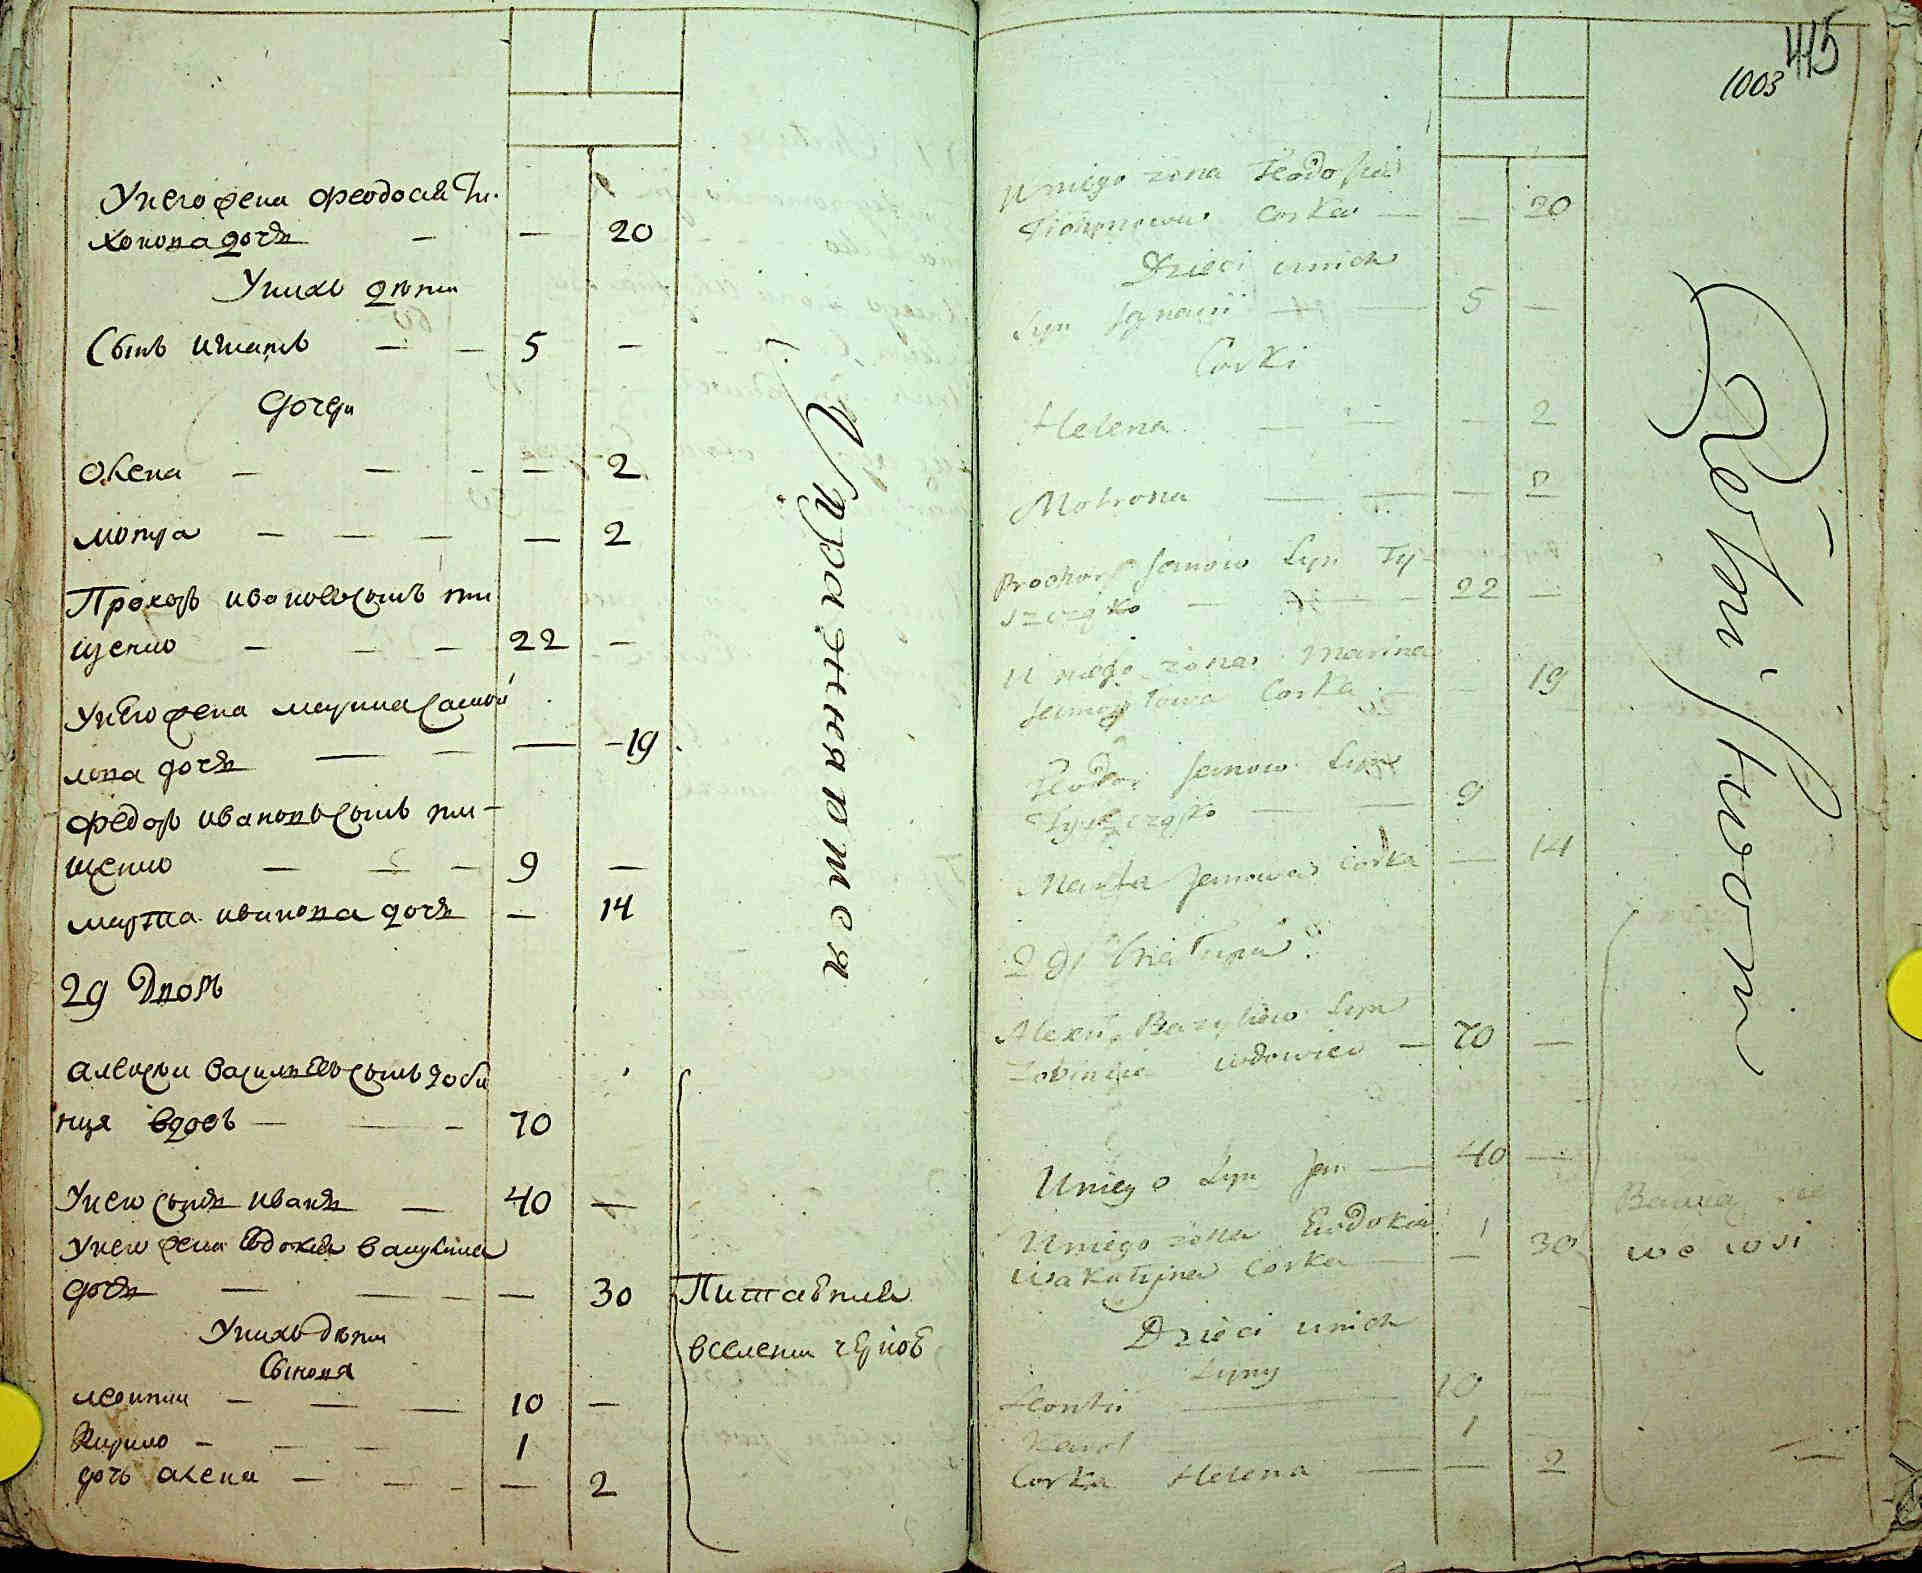 Унего жена Феодосия Ти-
хонова дочь — — 20
Унихъ дети
Сынъ игнатъ — — 5 —
дочери
олена — — — — 2
мотря — — — — 2
Прохоръ ивановъ сынъ ти
щенко — — — 22 —
Унего жена марина самой
лова дочь — — — 19
Федоръ ивановъ сынъ ти-
щенко — — — 9 —
марта иванова дочь — 14
29 Дворъ
алексѣи василиевъ сынъ зоби
нця вдовъ — — 70
Унего сынъ иванъ — 40 —
Унего жена Евдокия вакулина
дочь — — — — 30
Унихъ дети
Сыновя
леонтии — — — 10 —
Кирило — — — 1
дочь олена — — — — 2
кожанжан
Питается
вселении
1003
415
U niego zona Teodosia
Tichonowa Corka — — 20
Dzieci u nich
Syn Ignacii — — 5 —
Corki
Helena — — — 2
Motrona — — — 2
Prochor Janow Syn Ty-
szczęko — — 22 —
U niego zona Marina
Samoyłowa Corka — — 19
Teodor Janow Syn
Tyszczęko — — 9
Marta Janowa Corka — 14
29 Chałupa
Alexii Bazyliow Syn
wdowiec — 70 —
U niego Syn Jan — 40 —
U niego zona Eudokia
Wakulyna Corka — — 30
Dzieci u nich
Syny
Leontii — 10 —
Karol — 1
Corka Helena — — 2
Bawią się
we wsi